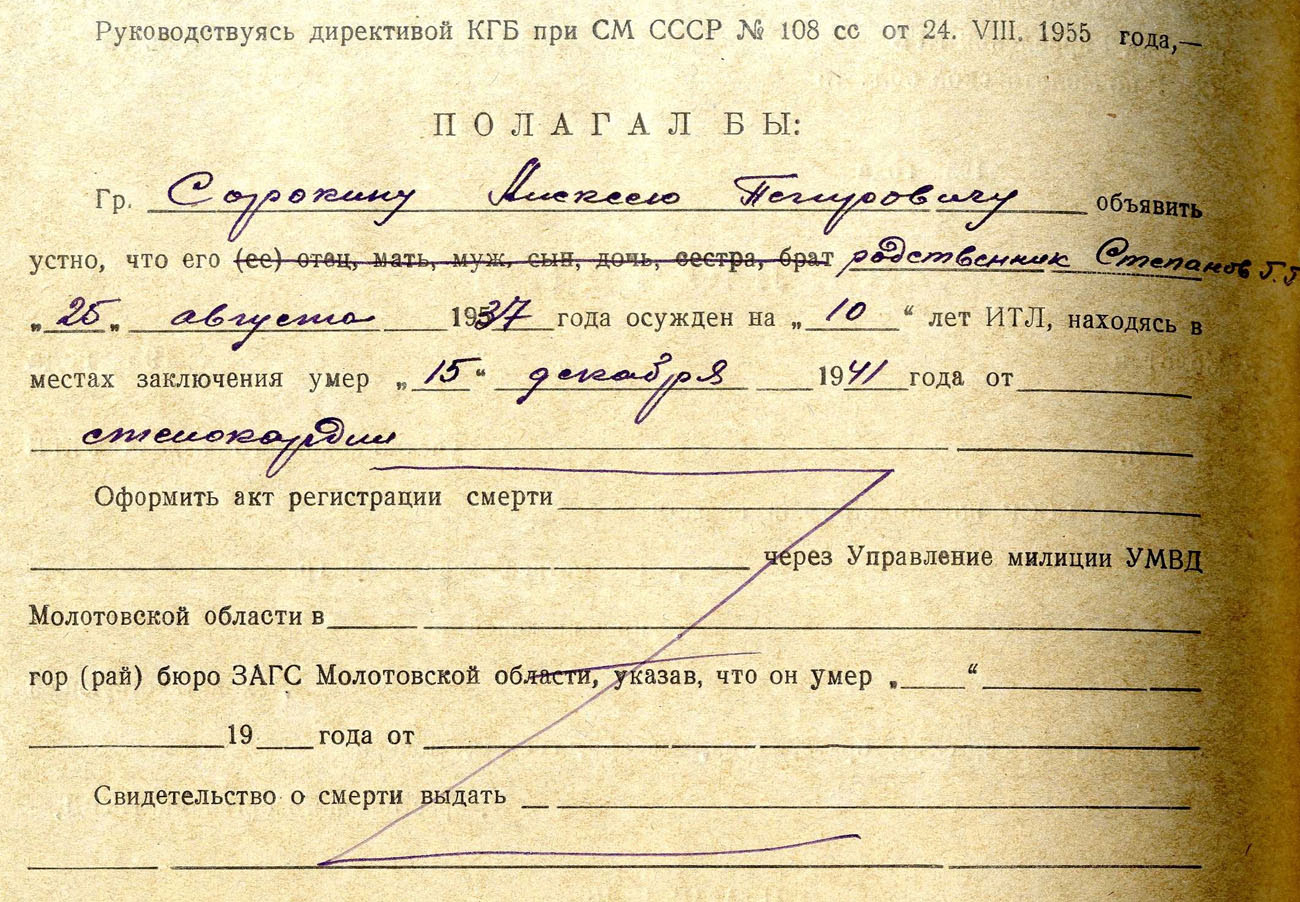 Руководствуясь директивой КГБ при СМ СССР № 108 сс от 24. VIII. 1955 года,—
ПОЛАГАЛ БЫ:
Гр. Сорокину Алексею Петровичу объявить
устно, что его (ее) отец, мать, муж, сын, дочь, сестра, брат родственник Степанов
„25„ августа 1937 года осужден на „10“ лет ИТЛ, находясь в
местах заключения умер „15“ декабря 1941 года от
стенокардии
Оформить акт регистрации смерти
через Управление милиции УМВД
Молотовской области в
гор (рай) бюро ЗАГС Молотовской области, указав, что он умер „ “
19 года от
Свидетельство о смерти выдать